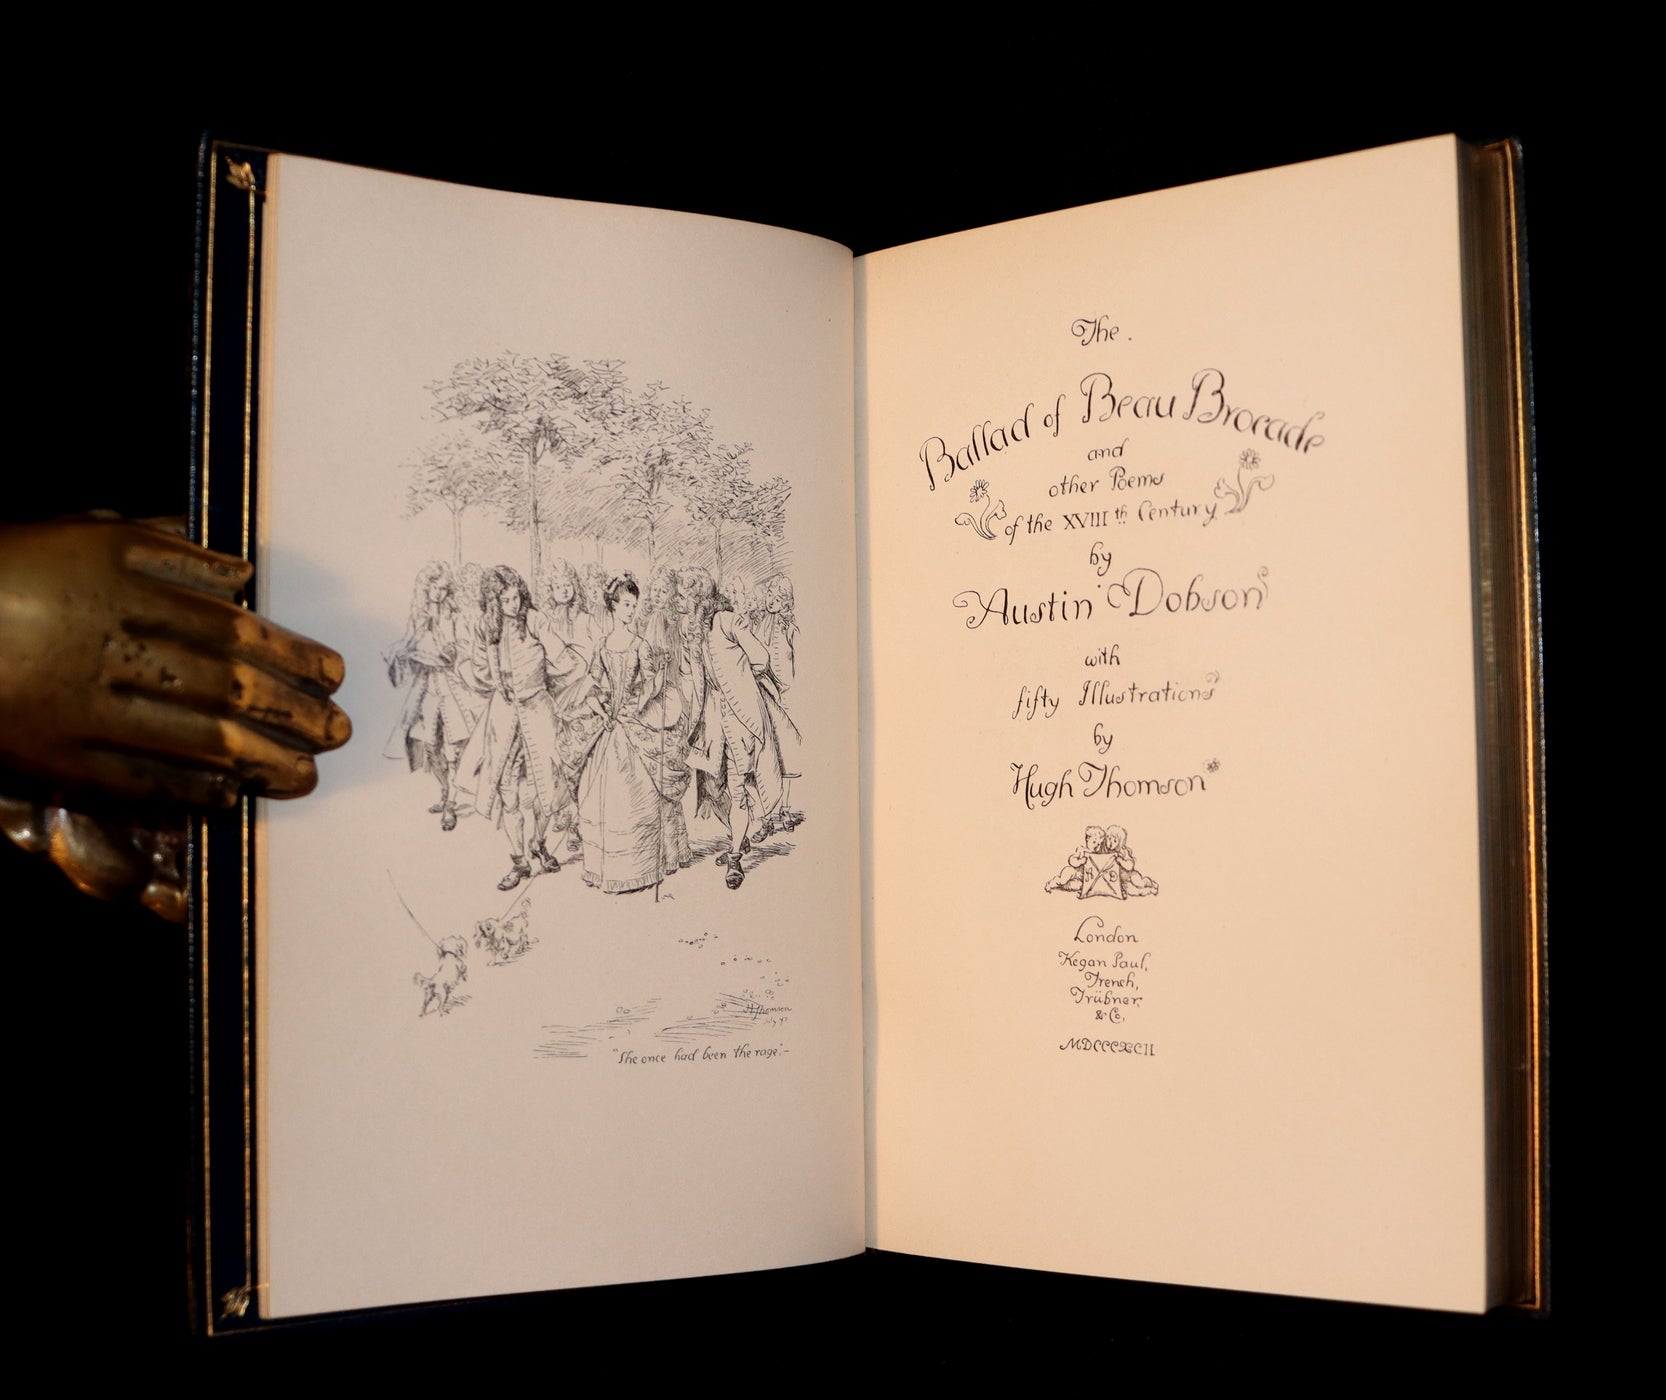 "She once had been the rage."—
H Thomson
The.
Ballad of Beau Brocade
and
other Poems
of the XVIIIth Century
by
Austin Dobson
with
fifty Illustrations
by
Hugh Thomson
A D
London
Kegan Paul,
Trench,
Trübner
& Co,
MDCCCXCII